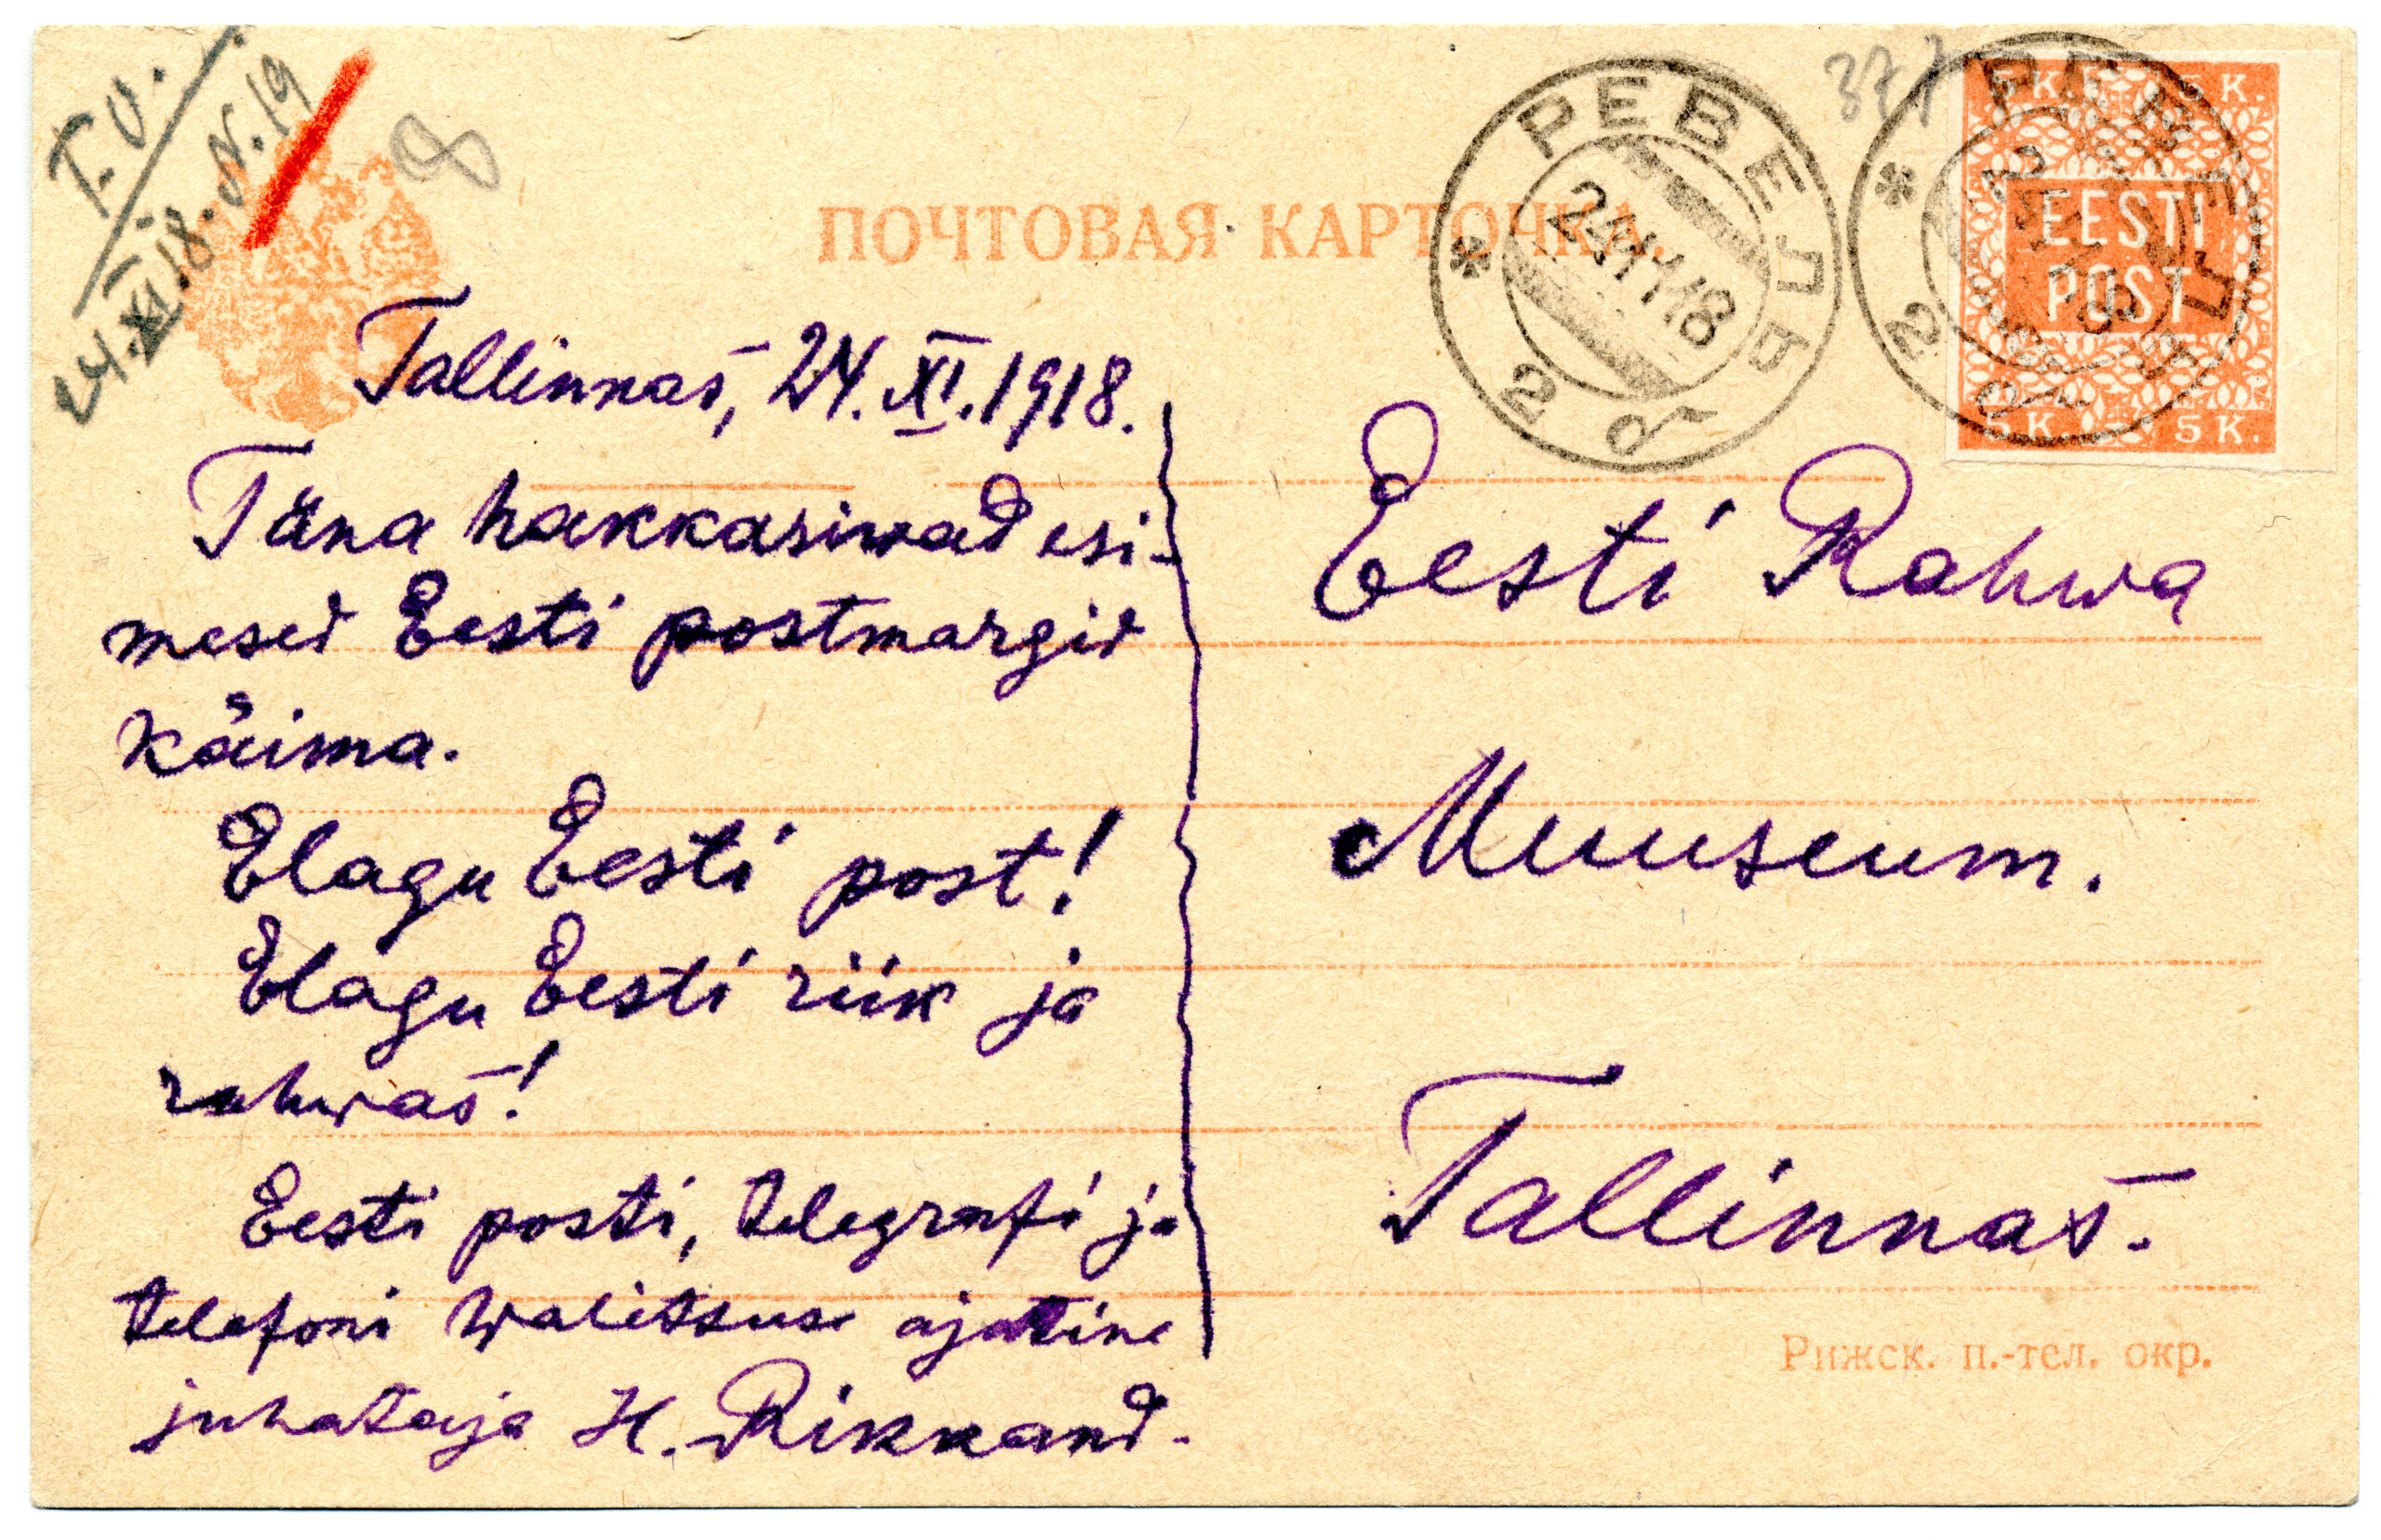 T.U.
24.XI.18. N.19
8
377
ПОЧТОВАЯ КАРТОЧКА.
РЕВЕЛЬ
24 11 18
2 б
РЕВЕЛЬ
2 б
5 K. 5 K.
EESTI
POST
5 K. 5 K.
Tallinnas, 24. XI. 1918.
Täna hakkasiwad esi-
mesed Eesti postmargid
käima.
Elagu Eesti post!
Elagu Eesti riik ja
rahwas!
Eesti posti, telegrafi ja
telefoni walitsuse ajutine
juhataja H. Rikkand.
Eesti Rahwa
Muuseum.
Tallinnas.
Рижск. п.-тел. окр.